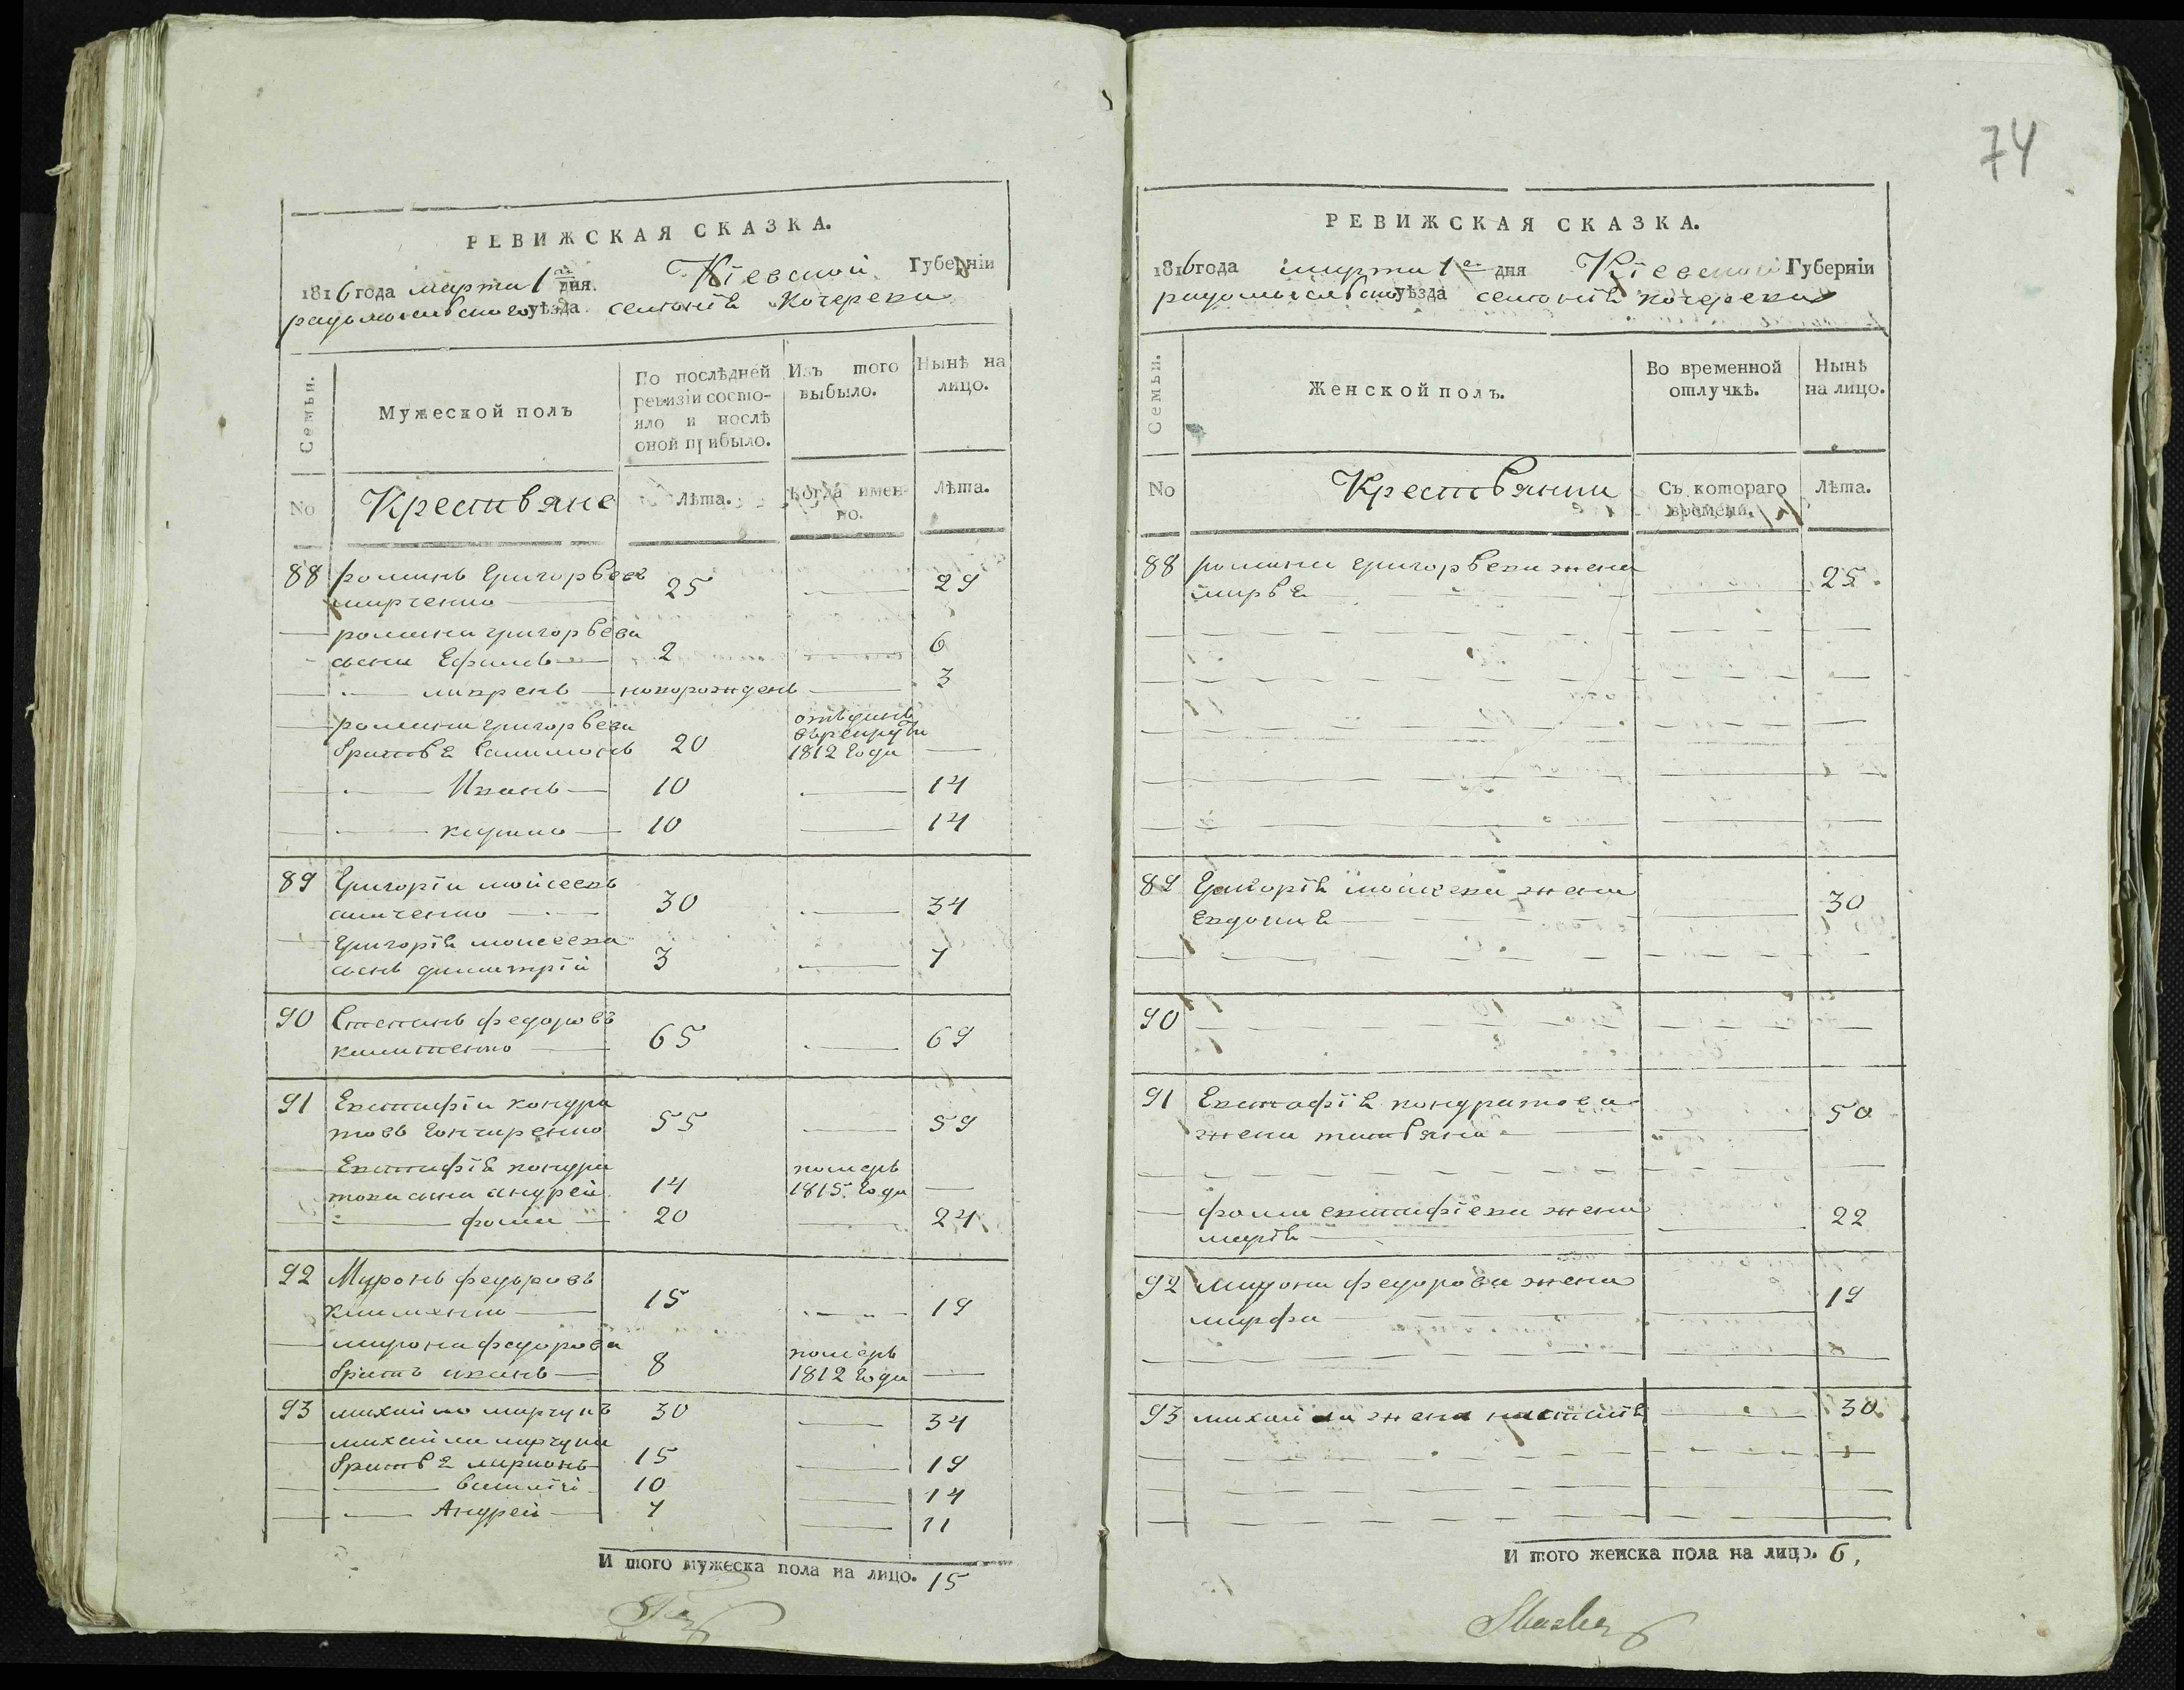 74
РЕВИЖСКАЯ СКАЗКА.
1816 года марта 1го дня. Кіевской Губерніи
радомысльского уѣзда селеніѣ Кочерева
Семьи.
Мужеской полъ
По послѣдней ревизіи состо-
яло и послѣ
оной прибыло.
Изъ того
выбыло.
Нынѣ на
лицо.
No
Крестьяне
Лѣта.
Когда имен-
но.
Лѣта.
88 романъ григорьевъ
марченко 25 29
романа григорьева
сыны Ефимъ 2 6
лаврень новорожденъ 3
романа григорьева
братья 20 1812 года
Иванъ 10 14
10 14
89 Григоріи мойсеевъ
30 34
Григоріѧ моисеева
сынъ димитрій 3 7
90 Степанъ федоровъ
клименко 65 69
91 Евстафіи кондра
товъ гончаренко 55 59
Евстафіѧ кондра
това сына андрей 14 померъ 1815. года
фома 20 24
92 Миронъ федоровъ
клименко 15 19
мирона федорова
братъ иванъ 8 померъ 1812 года
93 михайло марчукъ 30 34
михайла марчука
братьѧ 15 19
василій 10 14
Андрей 7 11
И того мужеска пола на лицо. 15
РЕВИЖСКАЯ СКАЗКА.
1816 года марта 1го дня Кіевской Губерніи
радомысльского уѣзда селеніѧ кочерева
Семьи.
Женской полъ.
Во временной
отлучкѣ.
Нынѣ
на лицо.
No
Крестьянки
Съ котораго
времени.
Лѣта.
88 романа григорьева жена
марьѧ 25
89 Григоріѧ мойсеева жена
Евдокиѧ 30
90
91 Евстафіѧ кондратова
жена татьяна 50
фомы евстафіева жена
маріѧ 22
92 мирона федорова жена
марфа 19
93 михайла жена настасіѧ 30
И того женска пола на лицо. 6,